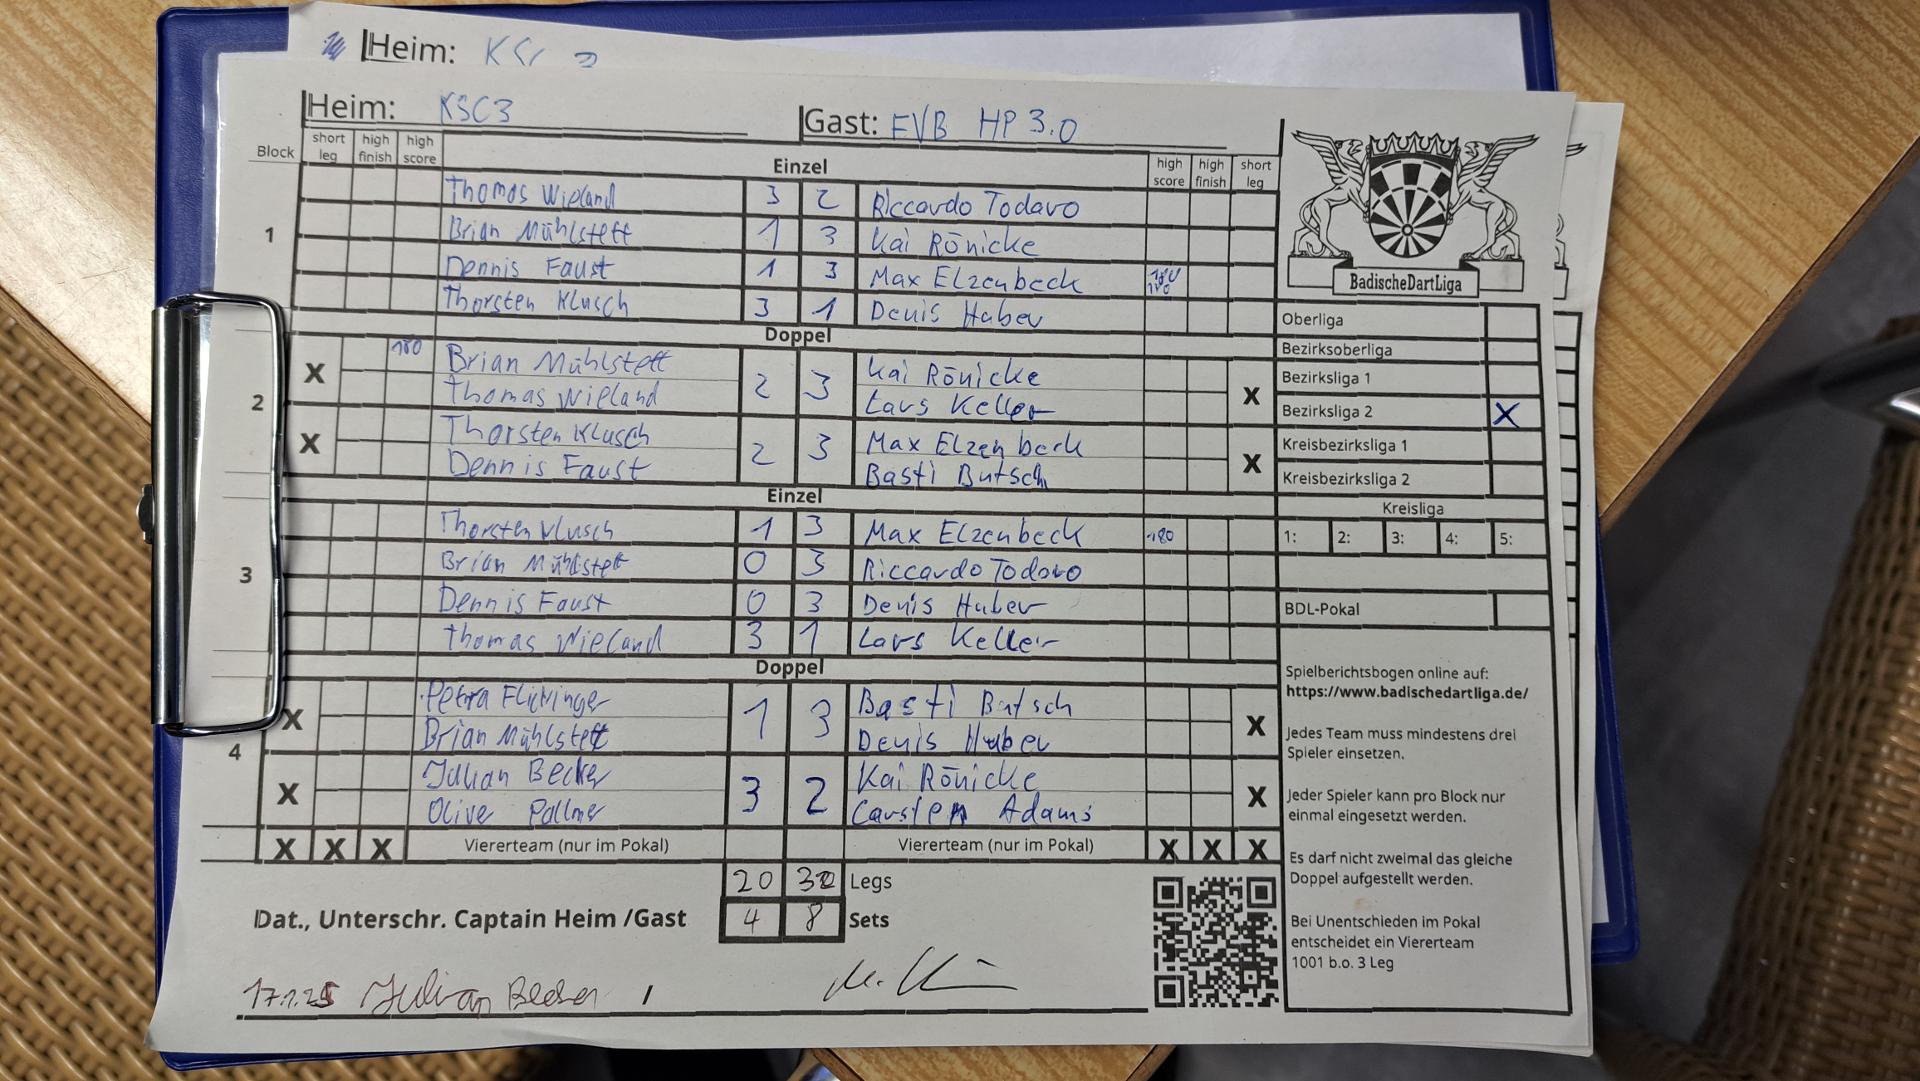 Heim: KSC 3
Heim: KSC3 Gast: FVB HP 3.0
Block short leg high finish high score Einzel high score high finish short leg
1
Thomas Wieland 3 2 Riccardo Todaro
Brian Mühlstett 1 3 Kai Rönicke
Dennis Faust 1 3 Max Elzenbeck 180 180
Thorsten Klusch 3 1 Denis Huber
Doppel
2
X 180 Brian Mühlstett 2 3 Kai Rönicke X
Thomas Wieland Lars Keller
X Thorsten Klusch 2 3 Max Elzenbeck X
Dennis Faust Basti Butsch
Einzel
3
Thorsten Klusch 1 3 Max Elzenbeck 180
Brian Mühlstett 0 3 Riccardo Todaro
Dennis Faust 0 3 Denis Huber
Thomas Wieland 3 1 Lars Keller
Doppel
4
X Petra 1 3 Basti Butsch X
Brian Mühlstett Denis Huber
X Julian Becker 3 2 Kai Rönicke X
Olive Carsten Adams
X X X Viererteam (nur im Pokal) Viererteam (nur im Pokal) X X X
20 32 Legs
Dat., Unterschr. Captain Heim /Gast 4 8 Sets
17.1.25 Julian Becker /
BadischeDartLiga
Oberliga
Bezirksoberliga
Bezirksliga 1
Bezirksliga 2 X
Kreisbezirksliga 1
Kreisbezirksliga 2
Kreisliga
1: 2: 3: 4: 5:
BDL-Pokal
Spielberichtsbogen online auf:
https://www.badischedartliga.de/
Jedes Team muss mindestens drei
Spieler einsetzen.
Jeder Spieler kann pro Block nur
einmal eingesetzt werden.
Es darf nicht zweimal das gleiche
Doppel aufgestellt werden.
Bei Unentschieden im Pokal
entscheidet ein Viererteam
1001 b.o. 3 Leg